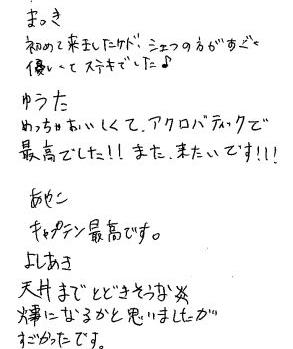 まつき
初めて来ましたケド、シェフの方がすごく
優しくてステキでした♪
ゆうた
めっちゃおいしくて、アクロバティックで
最高でした!! また、来たいです!!!
あやこ
キャプテン最高です。
よしあき
天井までとどきそうな
になるかと思いましたが
すごかったです。